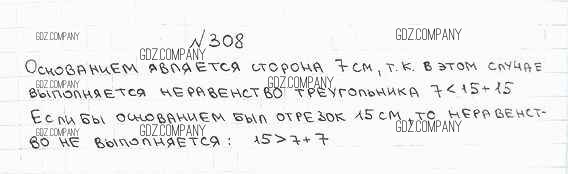 GDZ.COMPANY GDZ.COMPANY
№308
GDZ.COMPANY
Основанием является сторона 7 см, т.к. в этом случае
GDZ.COMPANY GDZ.COMPANY
выполняется неравенство треугольника 7<15+15
Если бы основанием был отрезок 15 см, то неравенст-
GDZ.COMPANY GDZ.COMPANY GDZ.COMPANY
во не выполняется: 15>7+7